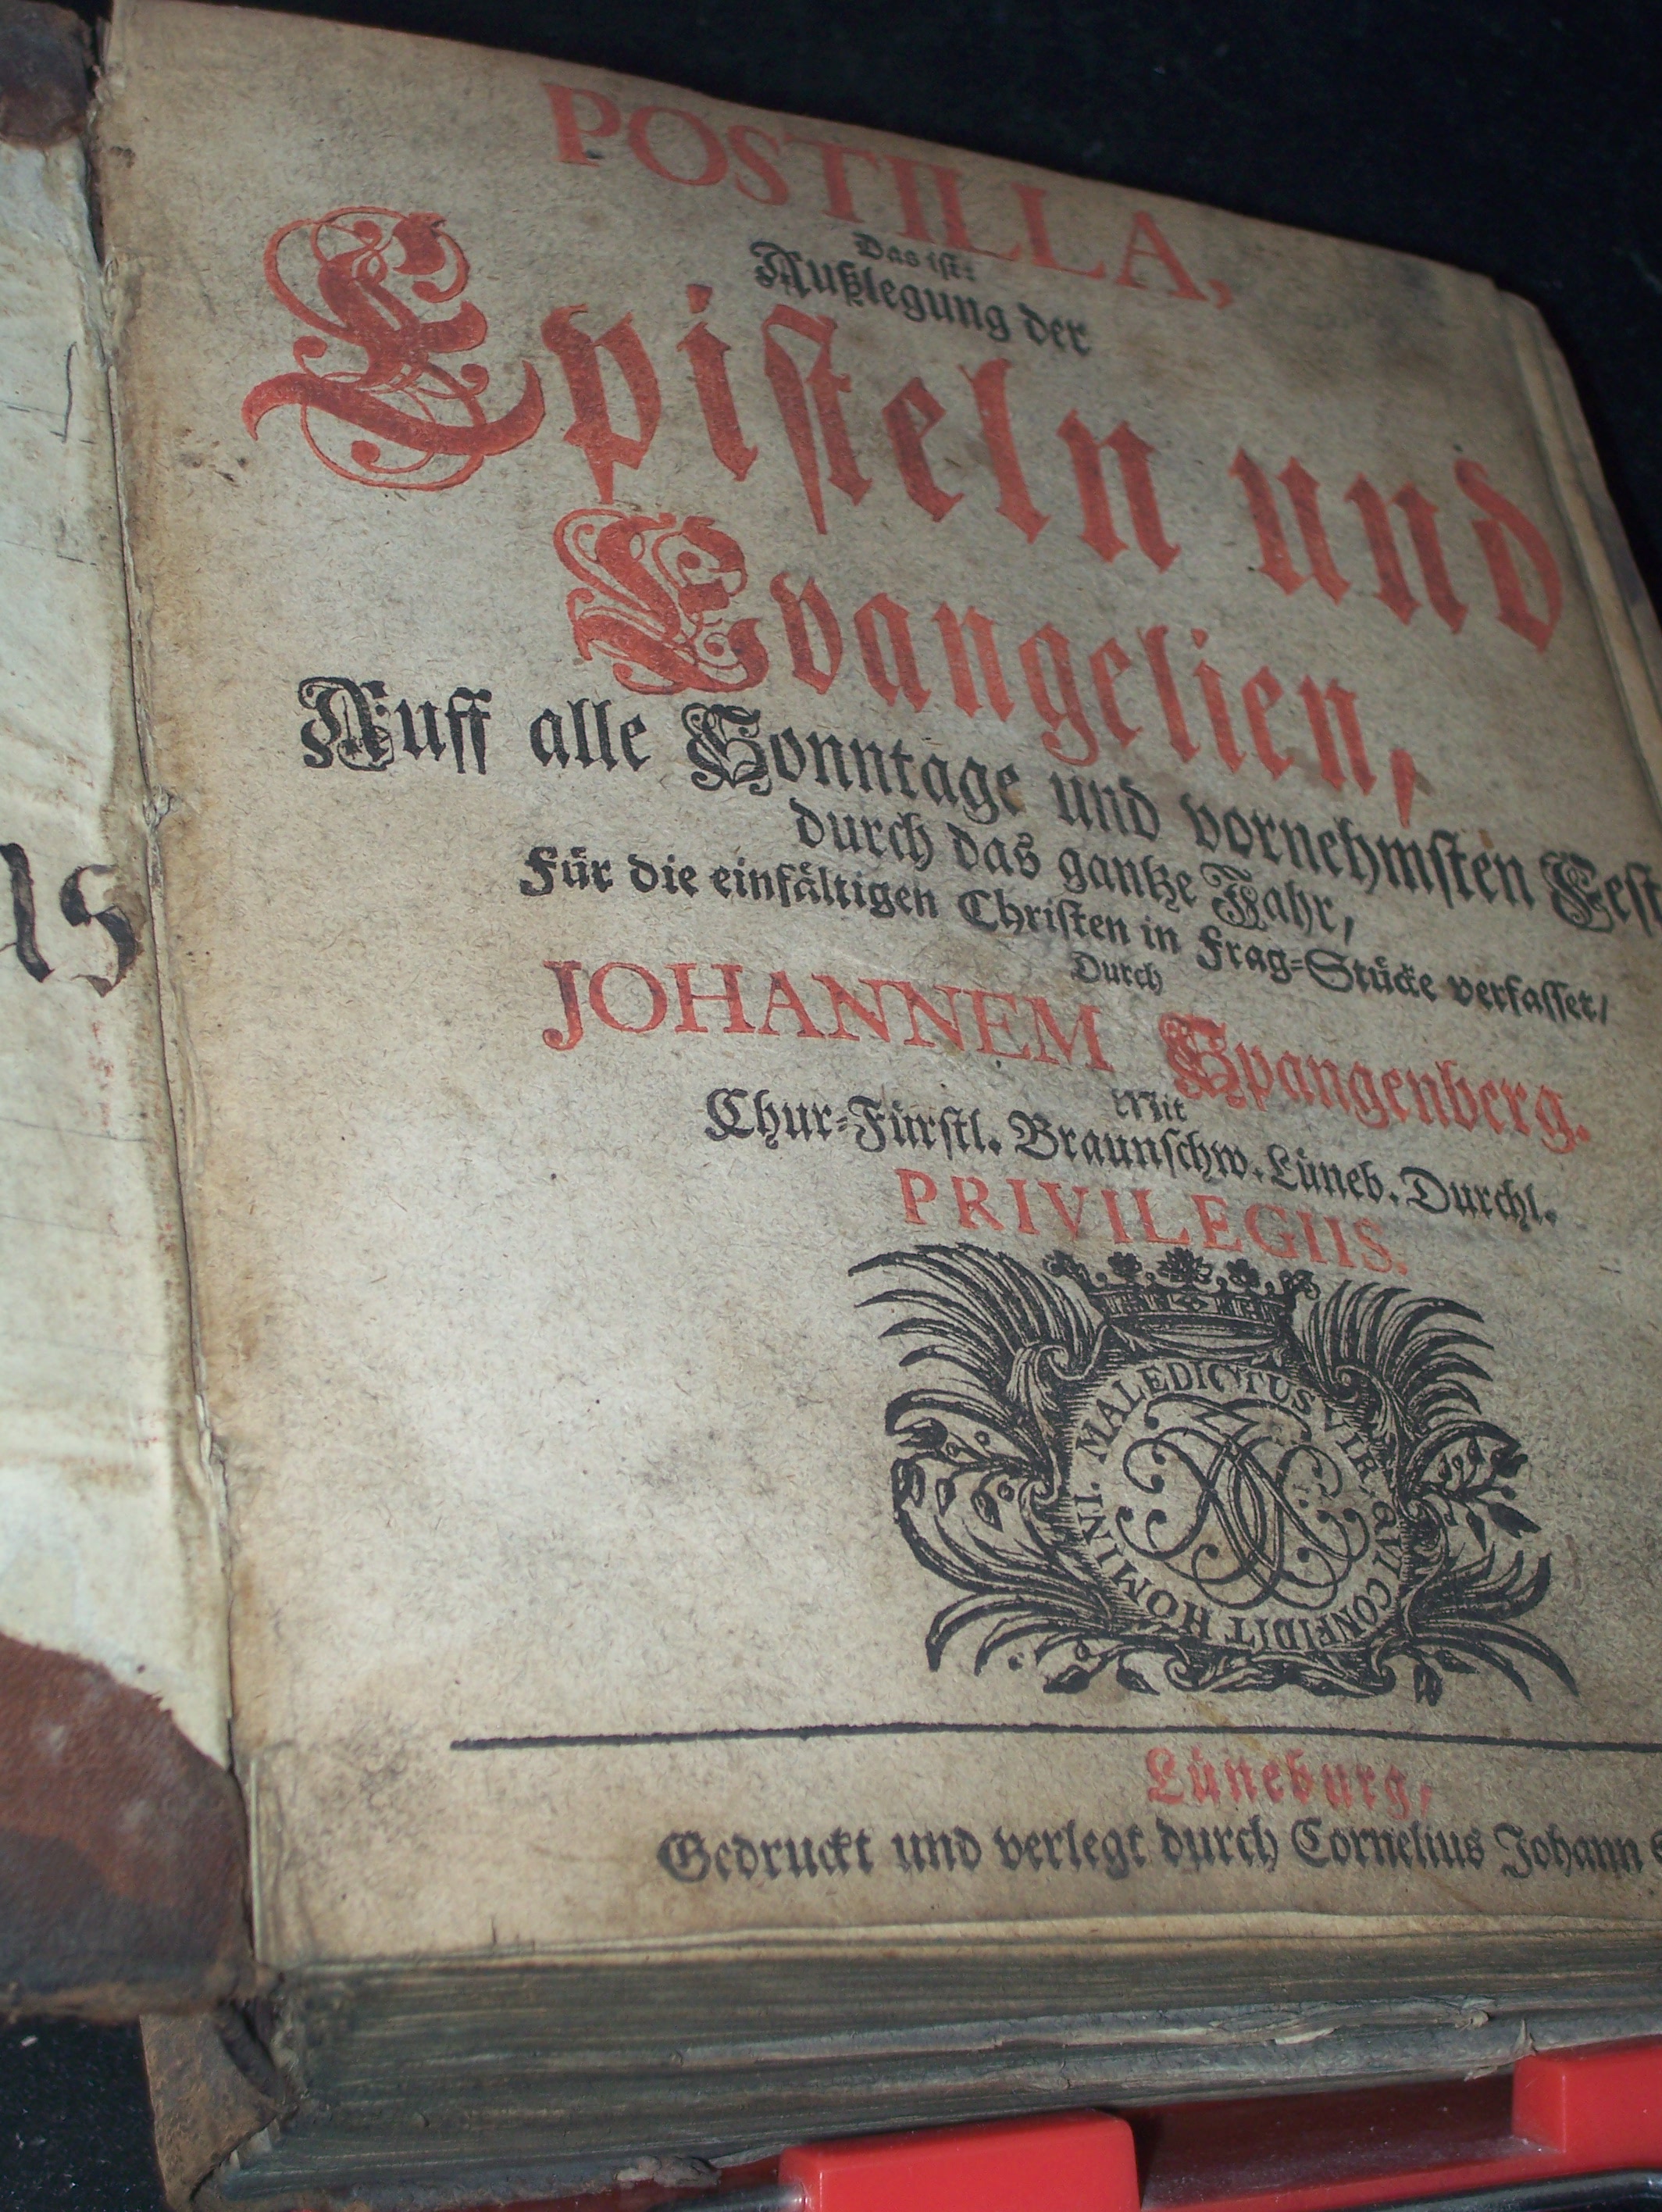 POSTILLA,
Das ist:
Außlegung der
Episteln und
Evangelien,
Auff alle Sonntage und vornehmsten Fest
durch das gantze Jahr,
Für die einfältigen Christen in Frag=Stücke verfasset/
Durch
JOHANNEM Spangenberg.
Mit
Chur=Fürstl. Braunschw. Lüneb. Durchl.
PRIVILEGIIS.
MALEDICTUS VIR QVI CONFIDIT HOMINI.
Lüneburg,
Gedruckt und verlegt durch Cornelius Johann
15